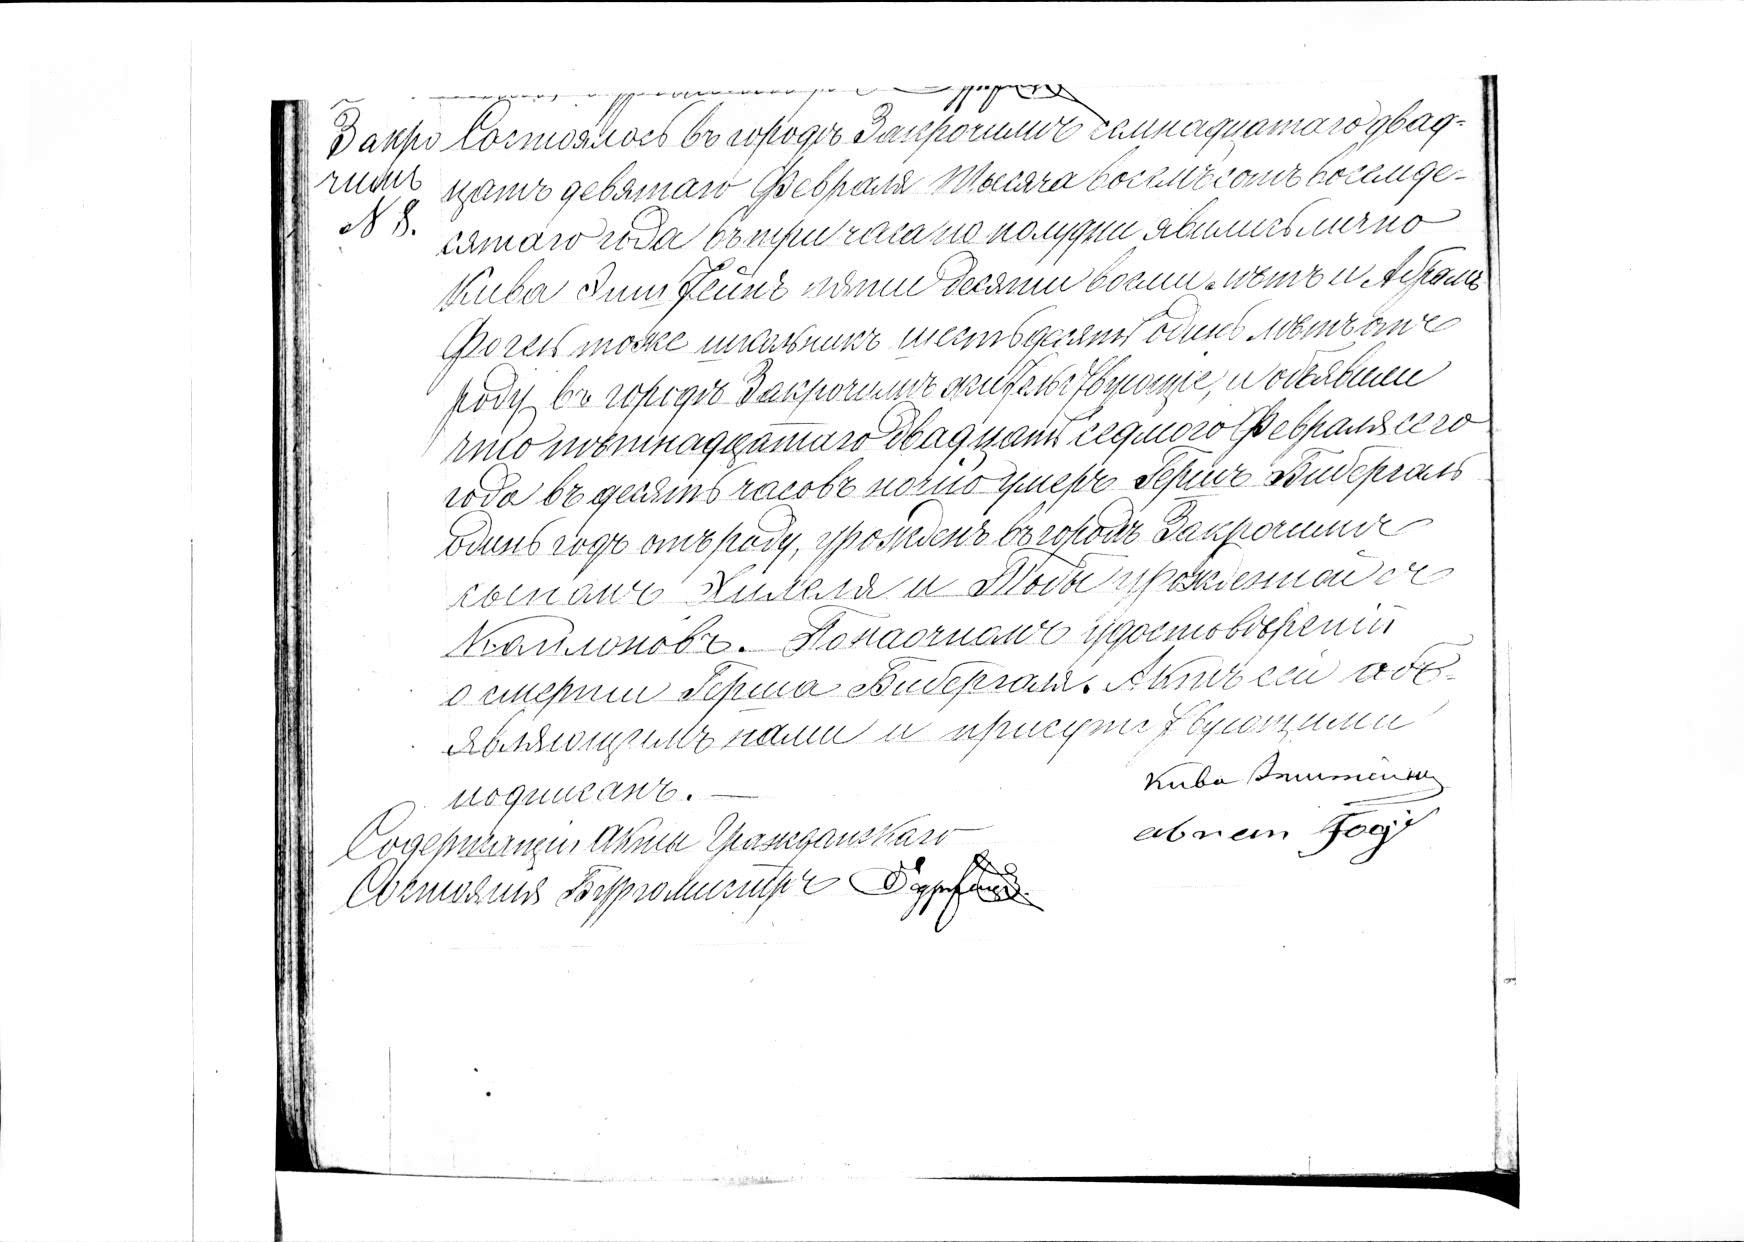 Закро
чимъ
N 8.
Состоялось въ городѣ Закрочимѣ семнадцатаго двад-
цать девятаго Февраля Тысяча восемьсотъ восемьде-
сятаго года въ три часа по полудни явились лично
Кива Эпштейнъ пяти десяти восми лѣтъ и Абрамъ
тоже школьникъ шестьдесятъ одинъ лѣтъ отъ
роду въ городѣ Закрочимѣ жительствующіе, и объявили
что пятнадцатаго двадцать седмого Февраля сего
года въ десять часовъ ночію умеръ Гершъ Бибергаль
одинъ годъ отъ роду, урожденъ въ городѣ Закрочимѣ
сыномъ Хилеля и Тобы урожденной съ
Каплоновъ. По наочномъ удостовѣреніи
о смерти Герша Бибергаля. Актъ сей объ-
являющимъ нами и присутствующими
подписанъ. —
Кива Эпштейнъ
Содержащій Акты Гражданскаго
Состоянія Бургомистръ